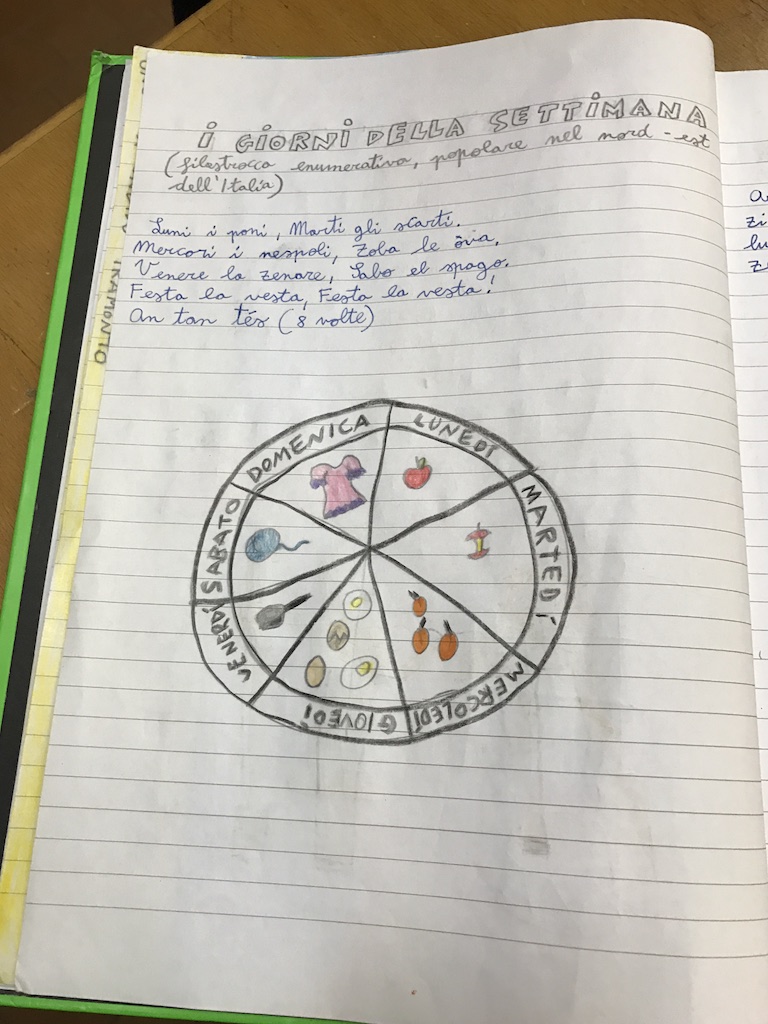 I GIORNI DELLA SETTIMANA
(filastrocca enumerativa, popolare nel nord-est
dell'Italia)
Luni i poni, Marti gli scarti.
Mercori i nespoli, Zoba le òva,
Venere la zenare, Sabo el spago.
Festa la vesta, Festa la vesta!
An tan tés (8 volte)
DOMENICA
LUNEDÌ
MARTEDÌ
MERCOLEDÌ
GIOVEDÌ
VENERDÌ
SABATO
TRAMONTO